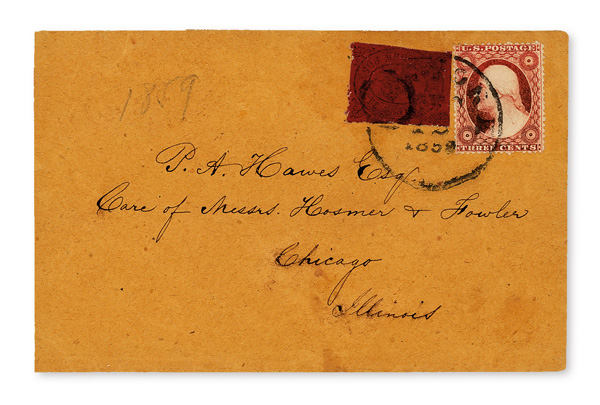 U.S. POSTAGE
THREE CENTS
1859
1859
P. A. Hawes Esq.
Care of Messrs. Hosmer & Fowler
Chicago
Illinois